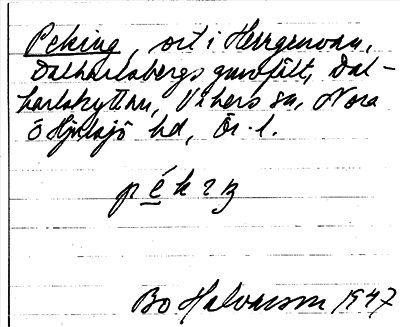 Peking, ort i Herrgruvan,
Dalkarlsbergs gruvfält, Dal-
karlshyttan, Vikers sn, Nora
o Hjulsjö bd, Ör. l.
pékiŋ
Bo Halvarson 1947